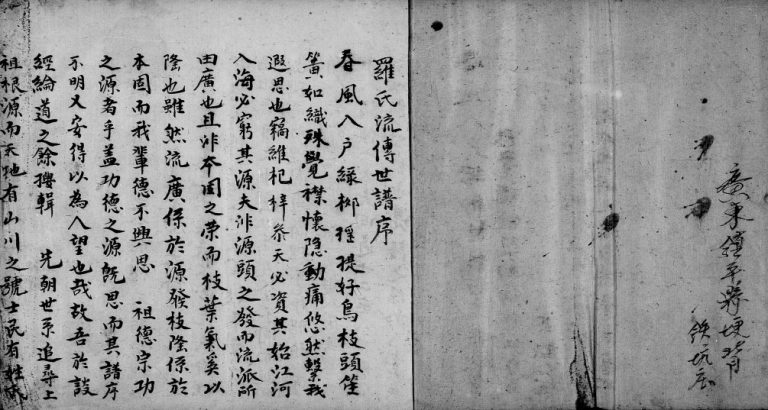 廣東鎮平縣埂背
鉄坑庄
羅氏流傳世譜序
春風入戶綠柳隄提好鳥枝頭笙
簧如織殊覺襟懷隐動痛悠然繫我
遐思也竊維杞梓參天必資其始江河
入海必窮其源夫非源頭之發而流派所
由廣也且非本固之荣而枝葉氣奚以
隆也雖然流廣係於源發枝隆係於
本固而我輩德不興思 祖德宗功
之源者乎盖功德之源旣思而其譜序
不明又安得以為人望也哉故吾於談
經綸道之餘搜輯 先朝世系追尋上
祖根源而天地有山川之號士民有姓氏